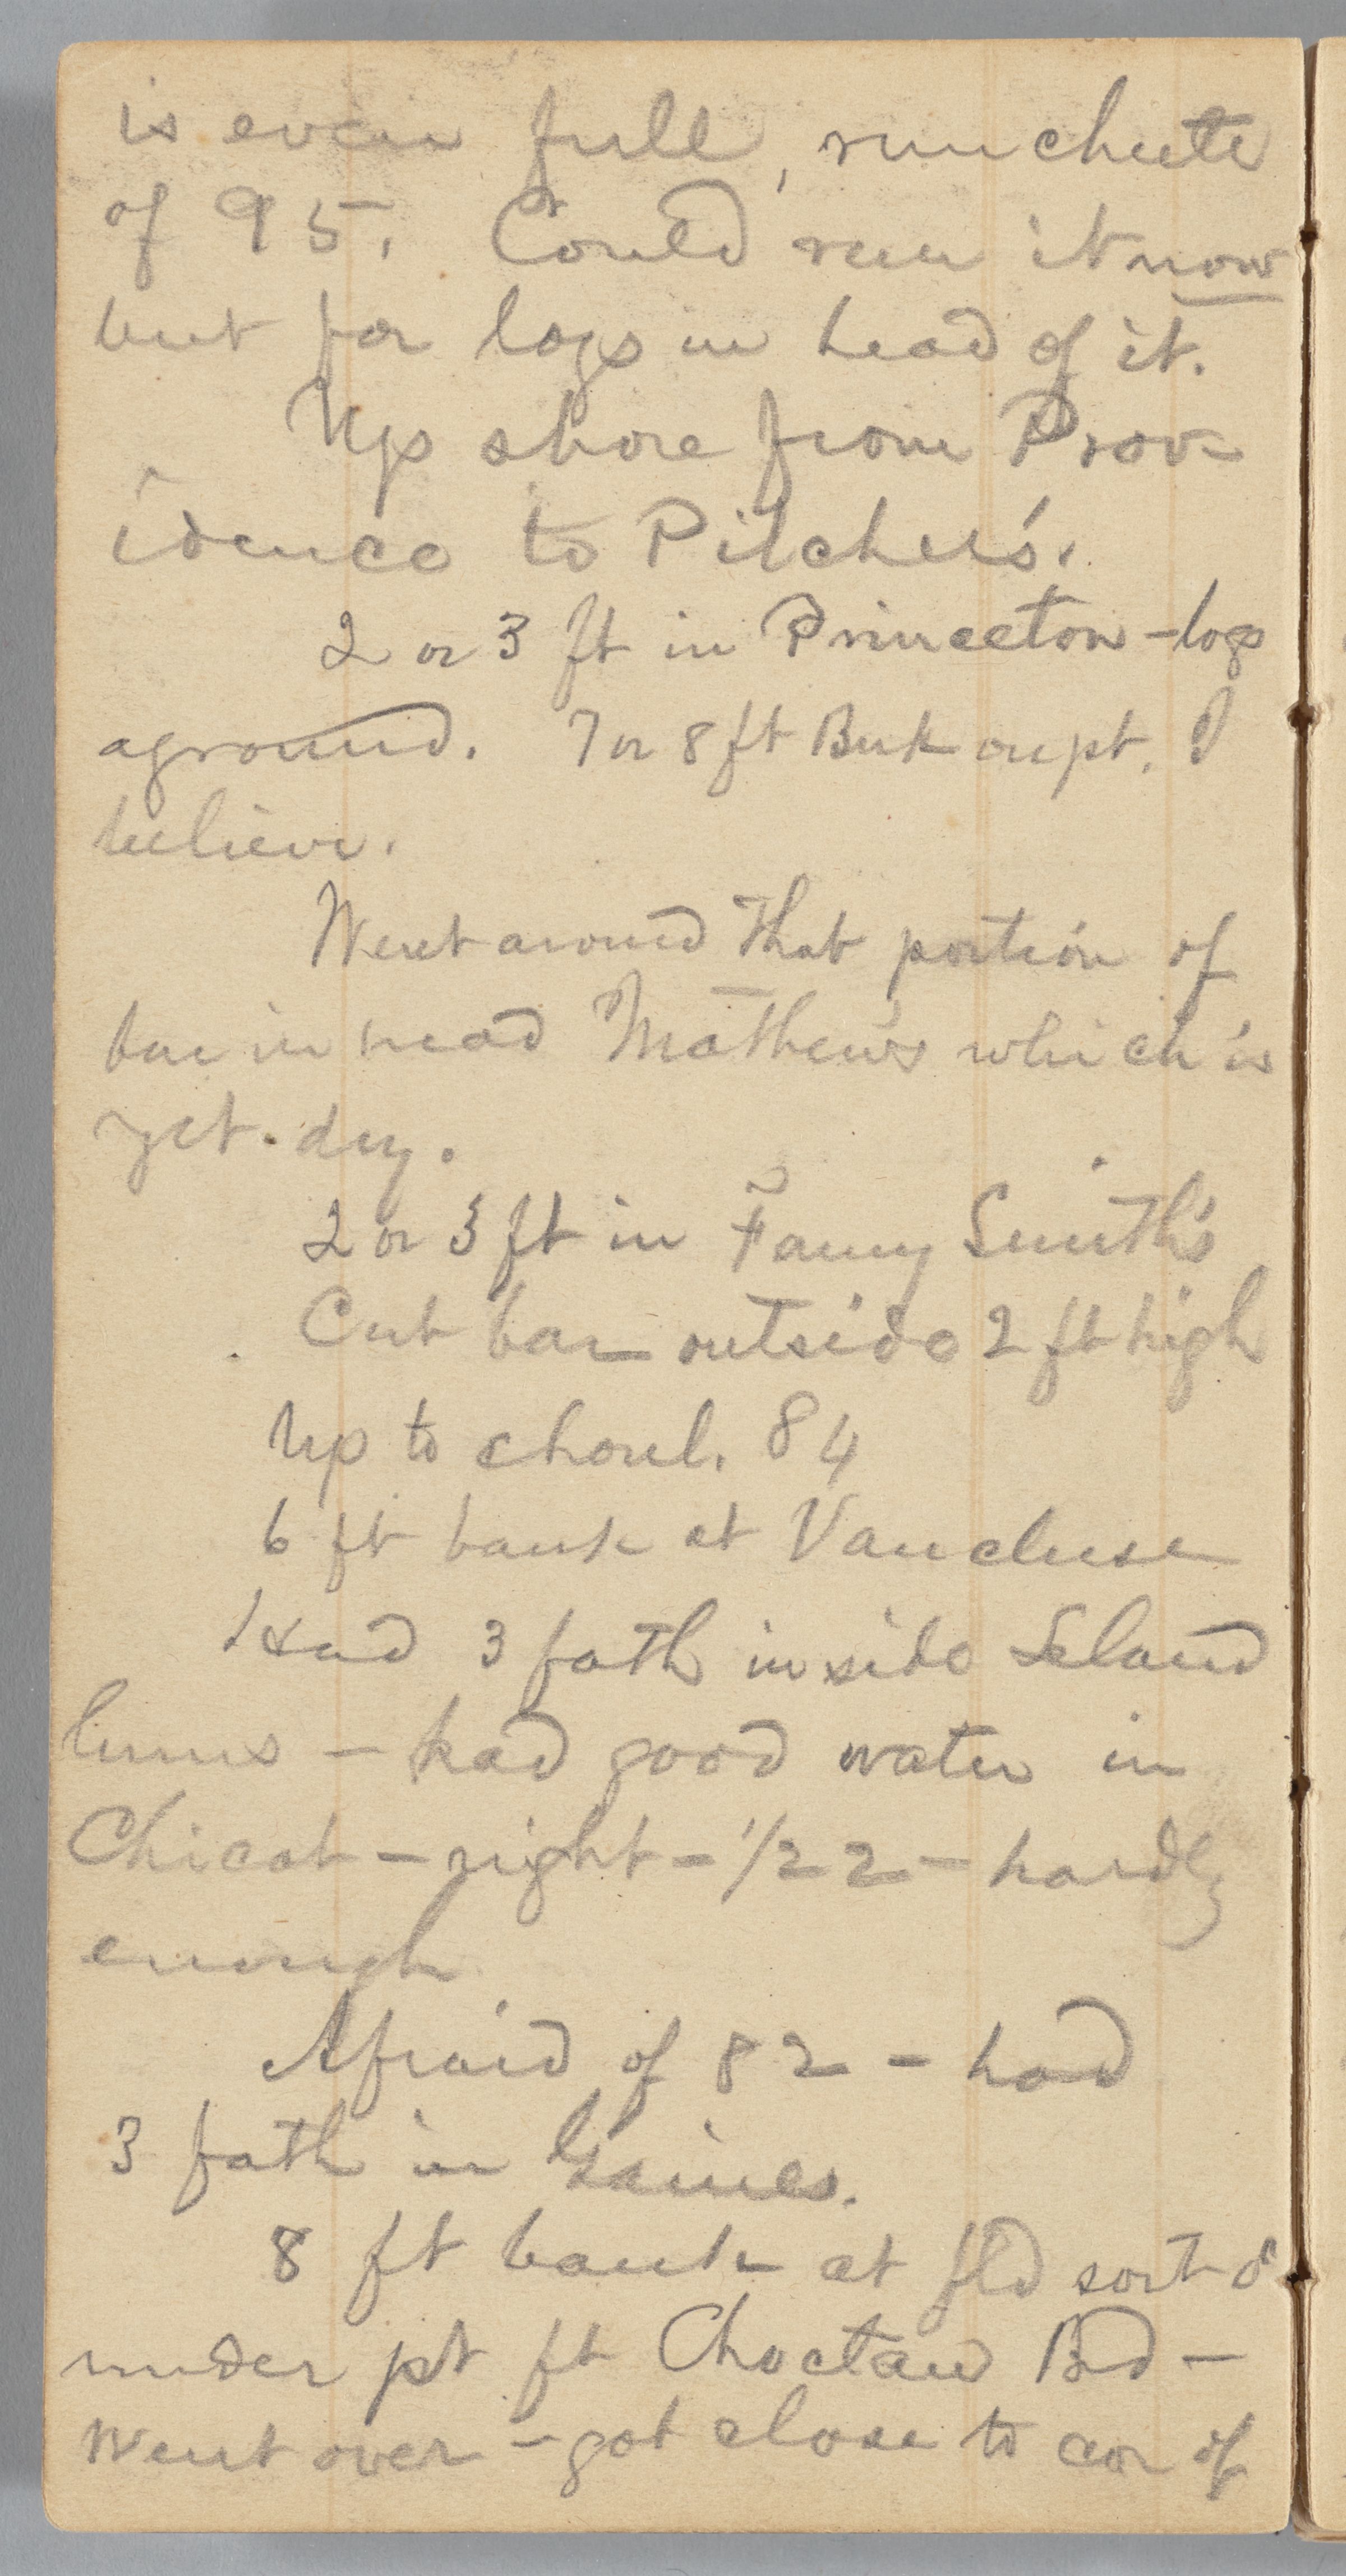 is even full, run chute
of 95. Could run it now
but for logs in head of it.
Up shore from Prov-
idence to Pilcher's.
2 or 3 ft in Princeton - logs
aground. 7 or 8 ft Bnk on pt. I
believe.
Went around that portion of
bar in head Mathews which is
yet dry.
2 or 3 ft in Fanny Smith's
Cut bar outside 2 ft high
Up to chanl. 84
6 ft bank at Vaucluse
Had 3 fath inside Island
- had good water in
Chicot - right - 1/2 2 - hardly
enough
Afraid of 82 - had
3 fath in Gaines.
8 ft bank at fld sort o'
under pt ft Choctaw Bd -
Went over - got close to cor of